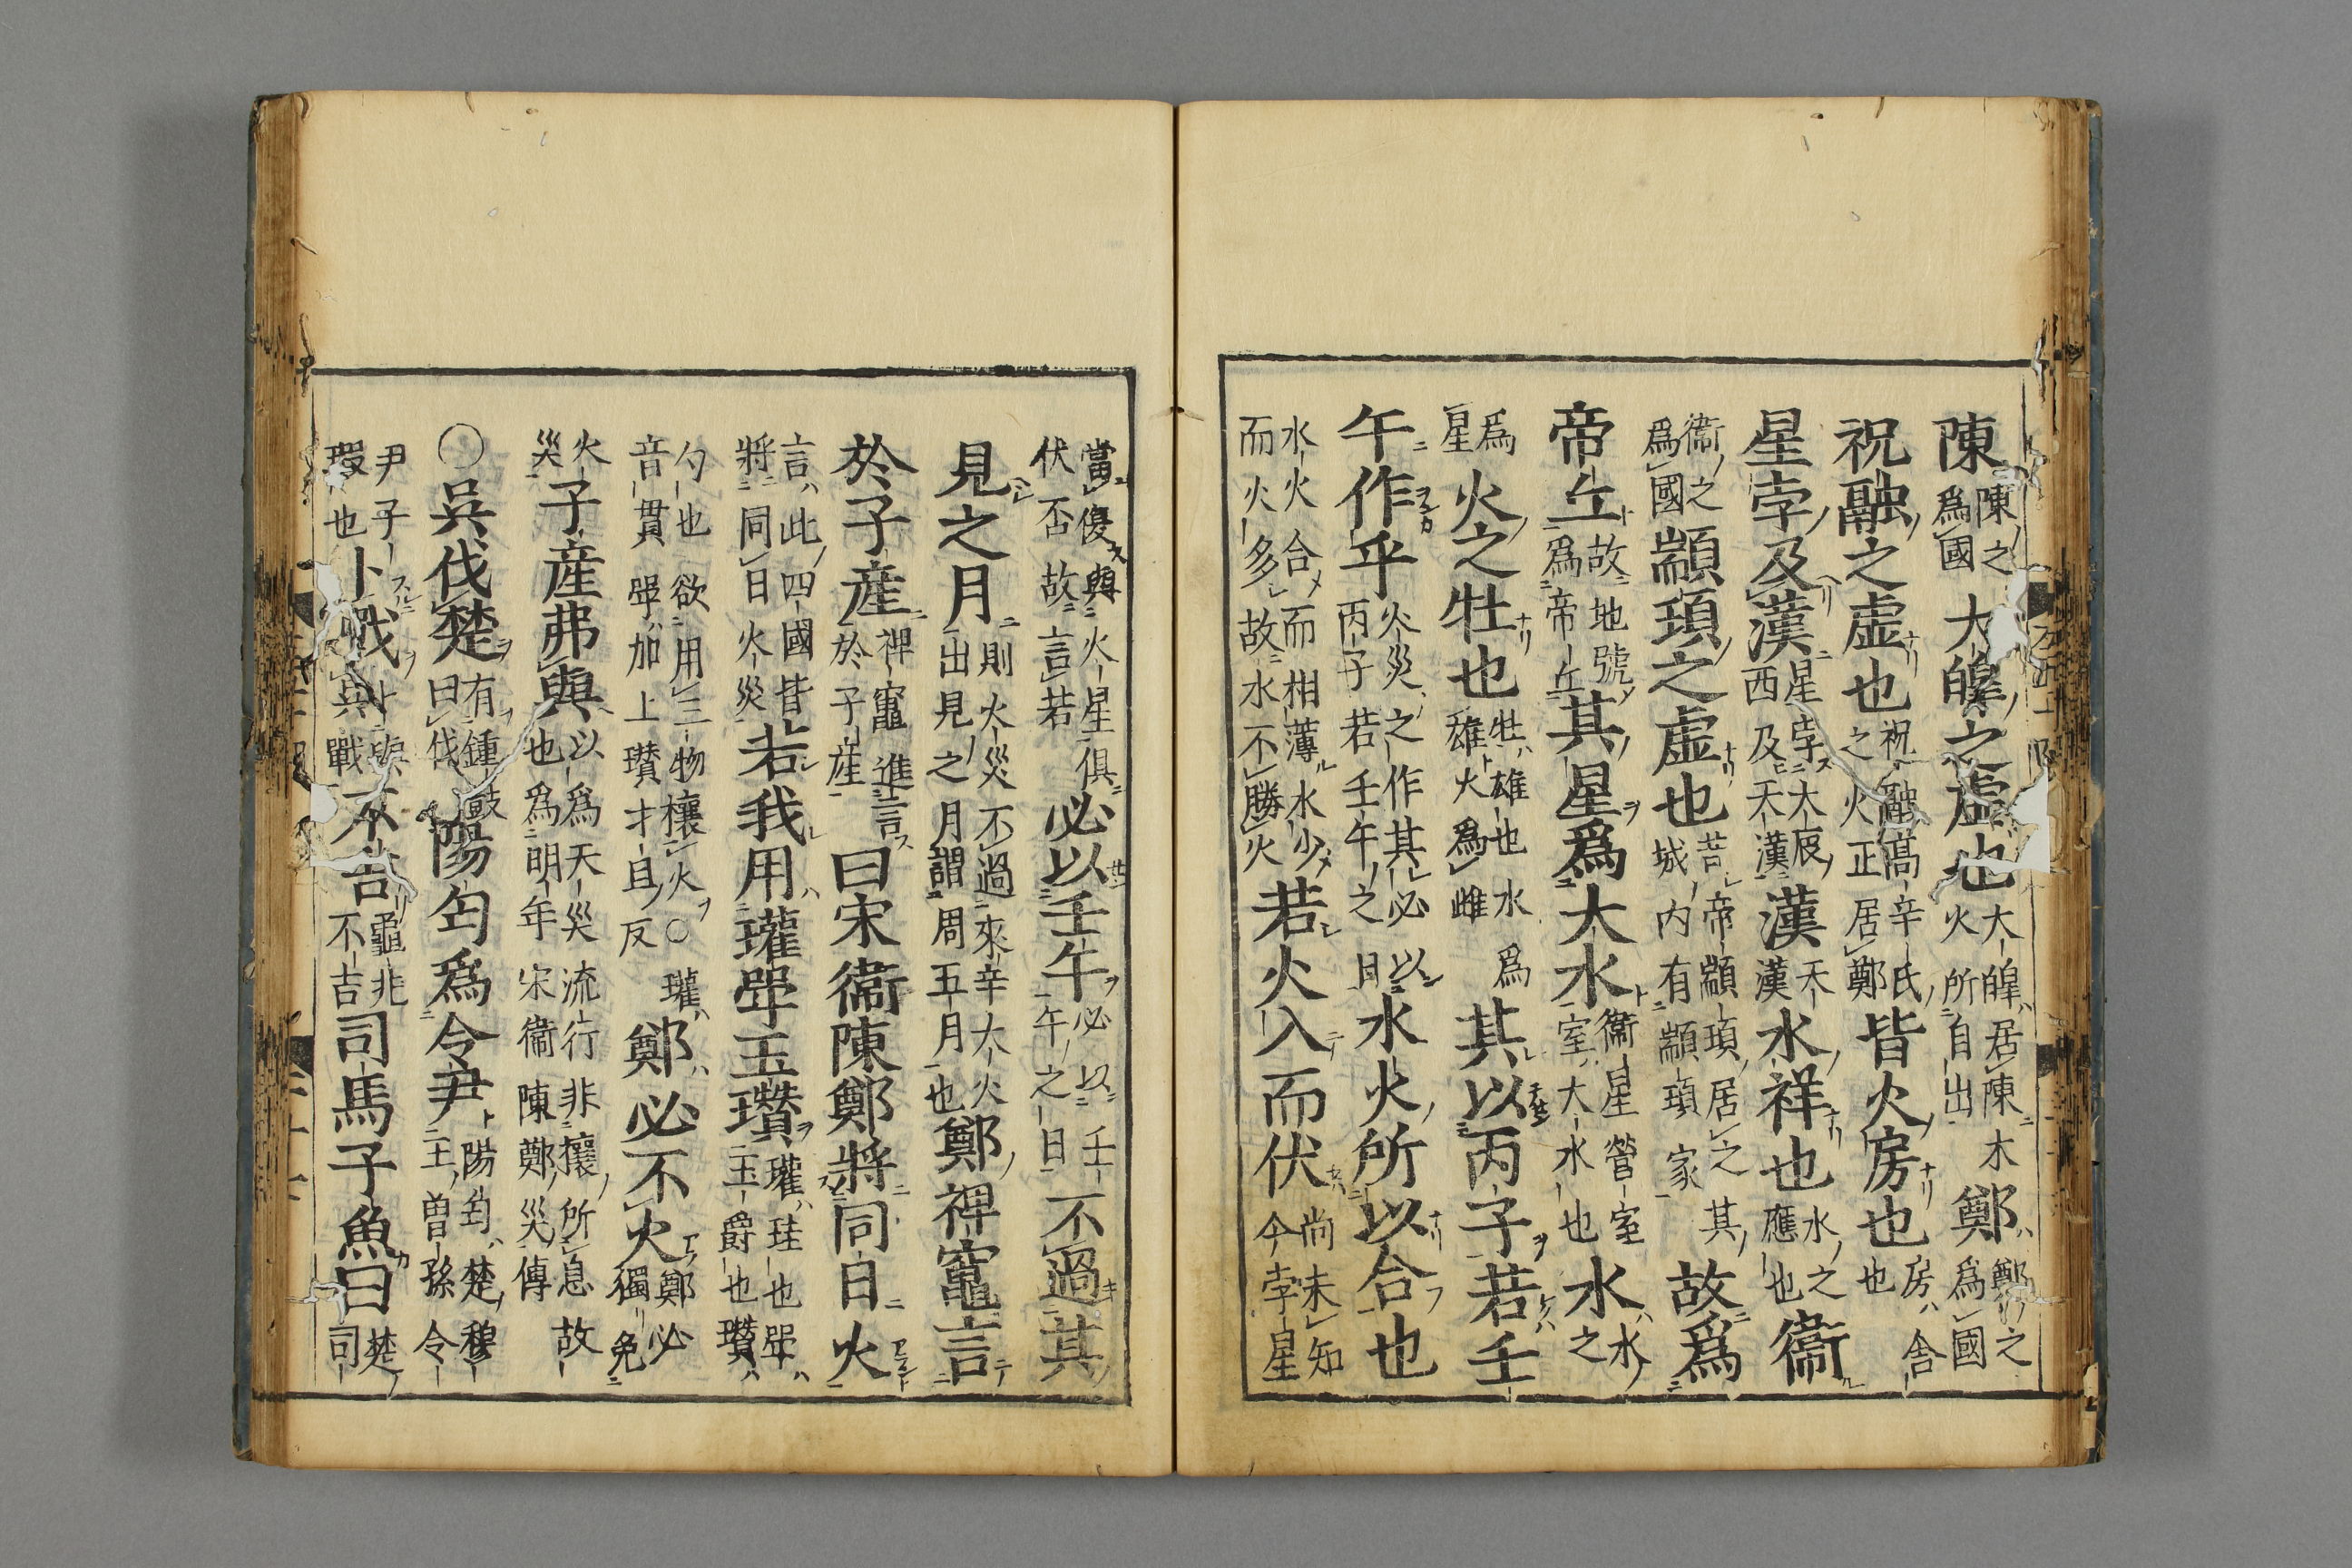 陳陳之爲國大皥之虚也大皥居陳木火所自出鄭鄭之爲國
祝融之虚也祝融高辛氏之火正居鄭皆火房也房舎也
星孛及漢星孛大辰西及天漢漢天漢水祥也水之應也衞
衞之爲國顓頊之虚也昔帝顓頊居之其城内有顓頊冢故爲
帝丘故地號爲帝丘其星爲大水衞星營室室大水也水水之
爲星火之牡也牡雄也水爲雄火爲雌其以丙子若壬
午作乎火災之作其必以丙子若壬午之日水火所以合也
水火合而相薄水少而火多故水不勝火若火入而伏尚未知今孛星
當復與火星俱伏否故言若必以壬午必以壬午之日不過其
見之月則火災不過來辛大火出見之月謂周五月也鄭裨竈言
於子産裨竈進言於子産曰宋衞陳鄭將同日火
言此四國皆將同日火災若我用瓘斝玉瓚瓘珪也斝玉爵也瓚
勺也欲用三物禳火○瓘音貫斝加上瓚才旦反鄭必不火鄭必獨免
火災子産弗與以爲天災流行非禳所息故也爲明年宋衞陳鄭災傳
○吳伐楚有鍾鼓曰伐陽匄爲令尹陽匄楚穆王曾孫令
尹子瑕也卜戰卜與吳戰不吉龜兆不吉司馬子魚曰楚司